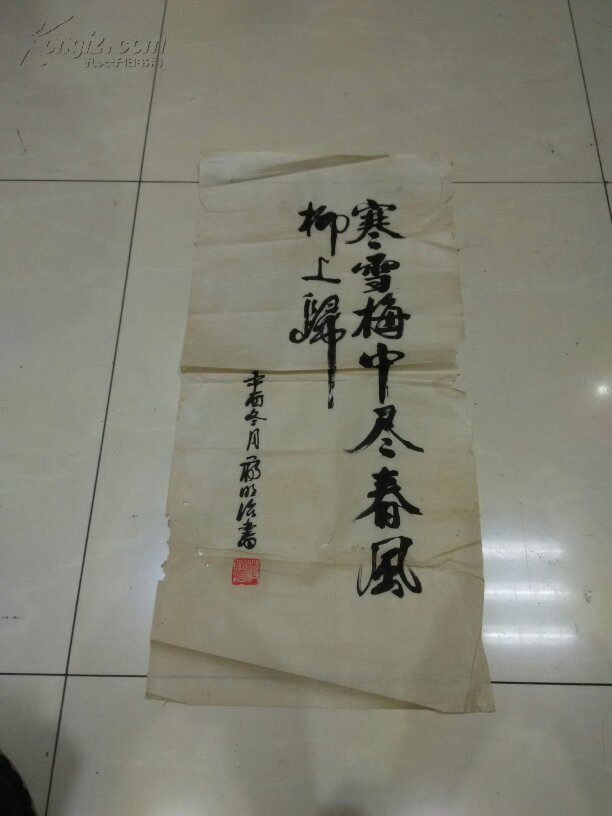 寒雪梅中尽春風
柳上歸
辛酉冬月楊明治書
Kongfz.com
孔夫子旧书网